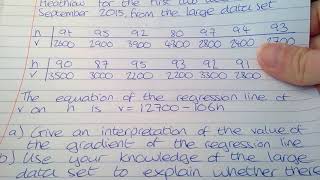 Heathrow for the first two
September 2015, from the large data set
h | 94 95 92 80 97 94 93
v | 2600 2900 3900 4300 2800 2400 2700
h | 90 87 95 93 92 91
v | 3500 3000 2200 2200 3300 2800
The equation of the regression line of
v on h is v = 12700 - 106h
a) Give an interpretation of the value of
the gradient of the regression line
b) Use your knowledge of the large
data set to explain whether there